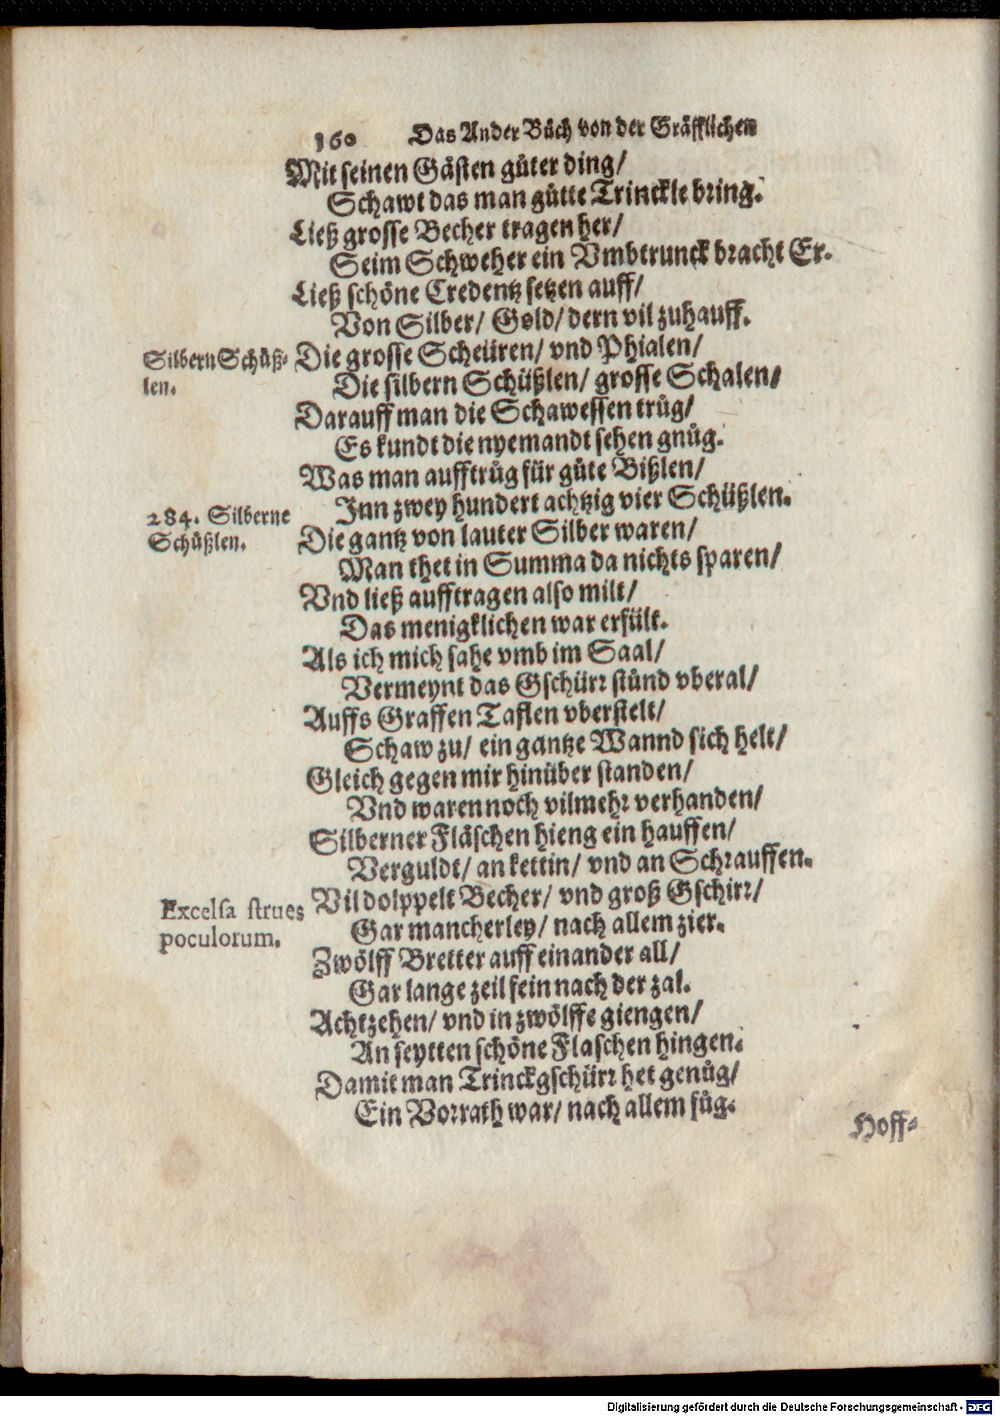 160 Das Ander Bůch von der Gräfflichen
Mit seinen Gästen gůter ding/
Schawt das man gůtte Trinckle bring.
Ließ grosse Becher tragen her/
Seim Schweher ein Vmbtrunck bracht Er.
Ließ schöne Credentz setzen auff/
Von Silber/ Gold/ dern vil zuhauff.
Silbern Schüß-
len.
Die grosse Scheüren/ vnd Phialen/
Die silbern Schüßlen/ grosse Schalen/
Darauff man die Schawessen trůg/
Es kundt die nyemandt sehen gnůg.
Was man aufftrůg für gůte Bißlen/
Inn zwey hundert achtzig vier Schüßlen.
284. Silberne
Schüßlen.
Die gantz von lauter Silber waren/
Man thet in Summa da nichts sparen/
Vnd ließ aufftragen also milt/
Das menigklichen war erfült.
Als ich mich sahe vmb im Saal/
Vermeynt das Gschürr stůnd vberal/
Auffs Graffen Taflen vberstelt/
Schaw zu/ ein gantze Wannd sich helt/
Gleich gegen mir hinüber standen/
Vnd waren noch vilmehr verhanden/
Silberner Fläschen hieng ein hauffen/
Verguldt/ an kettin/ vnd an Schrauffen.
Excelsa strues
poculorum.
Vil dolppelt Becher/ vnd groß Gschirr/
Gar mancherley/ nach allem zier.
Zwölff Bretter auff einander all/
Gar lange zeil fein nach der zal.
Achtzehen/ vnd in zwölffe giengen/
An seytten schöne Flaschen hingen.
Damit man Trinckgschürr het genůg/
Ein Vorrath war/ nach allem fůg.
Hoff-
Digitalisierung gefördert durch die Deutsche Forschungsgemeinschaft - DFG